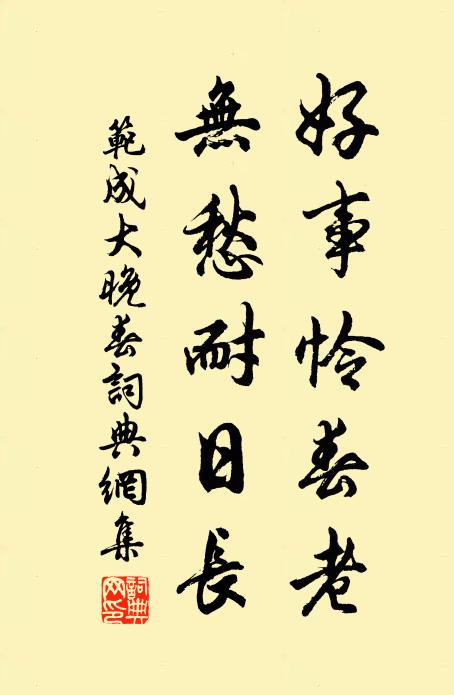 好事怜春老
無愁耐日長
範成大晚春詞典網集
詞典網印